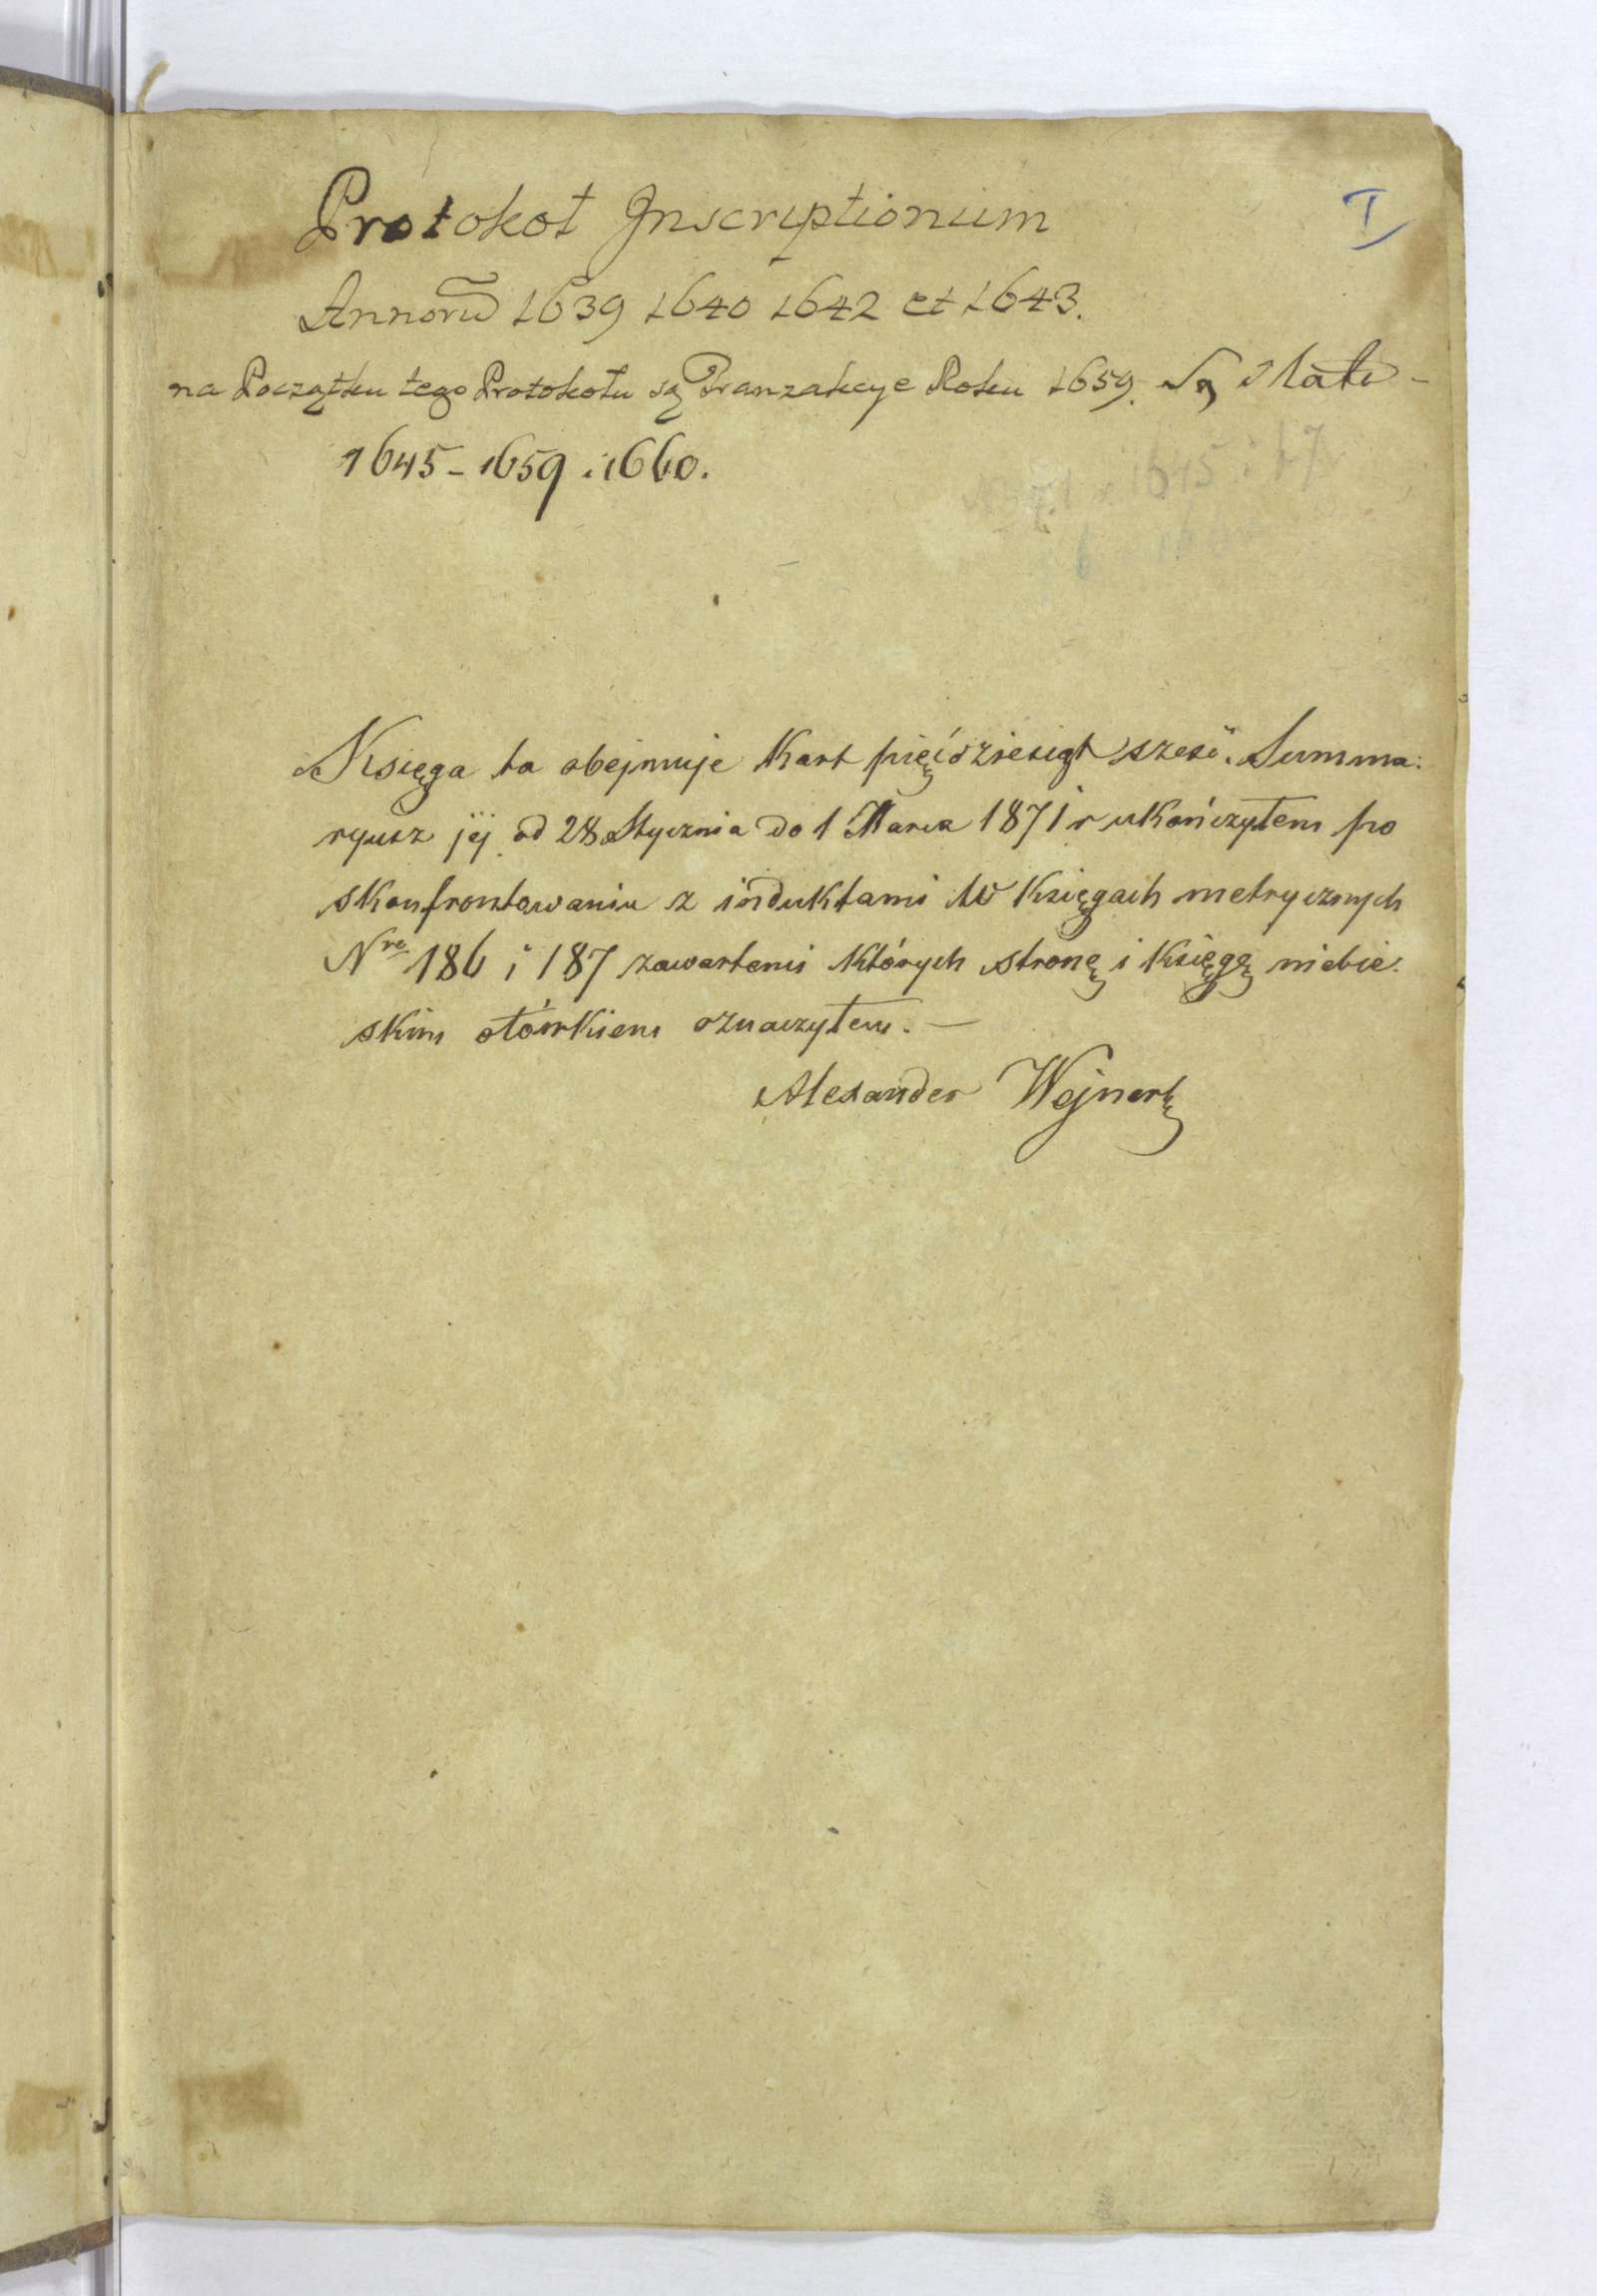 I
Protokoł Inscriptionum
Annorũ 1639 1640 1642 et 1643.
na Początku tego Protokołu są Tranzakcye Roku 1659. Są
1645 - 1659 i 1660.
1645 i 47
Księga ta obejmuje Kart pięćdziesiąt sześć. Summa:
ryusz jéj od 28 Stycznia do 1 Marca 1871 r ukończyłem po
skonfrontowaniu z induktami w Księgach metrycznych
Nre 186 i 187 zawartemi których stronę i Księgę niebie:
skim ołówkiem oznaczyłem. —
Alexander Wejnert